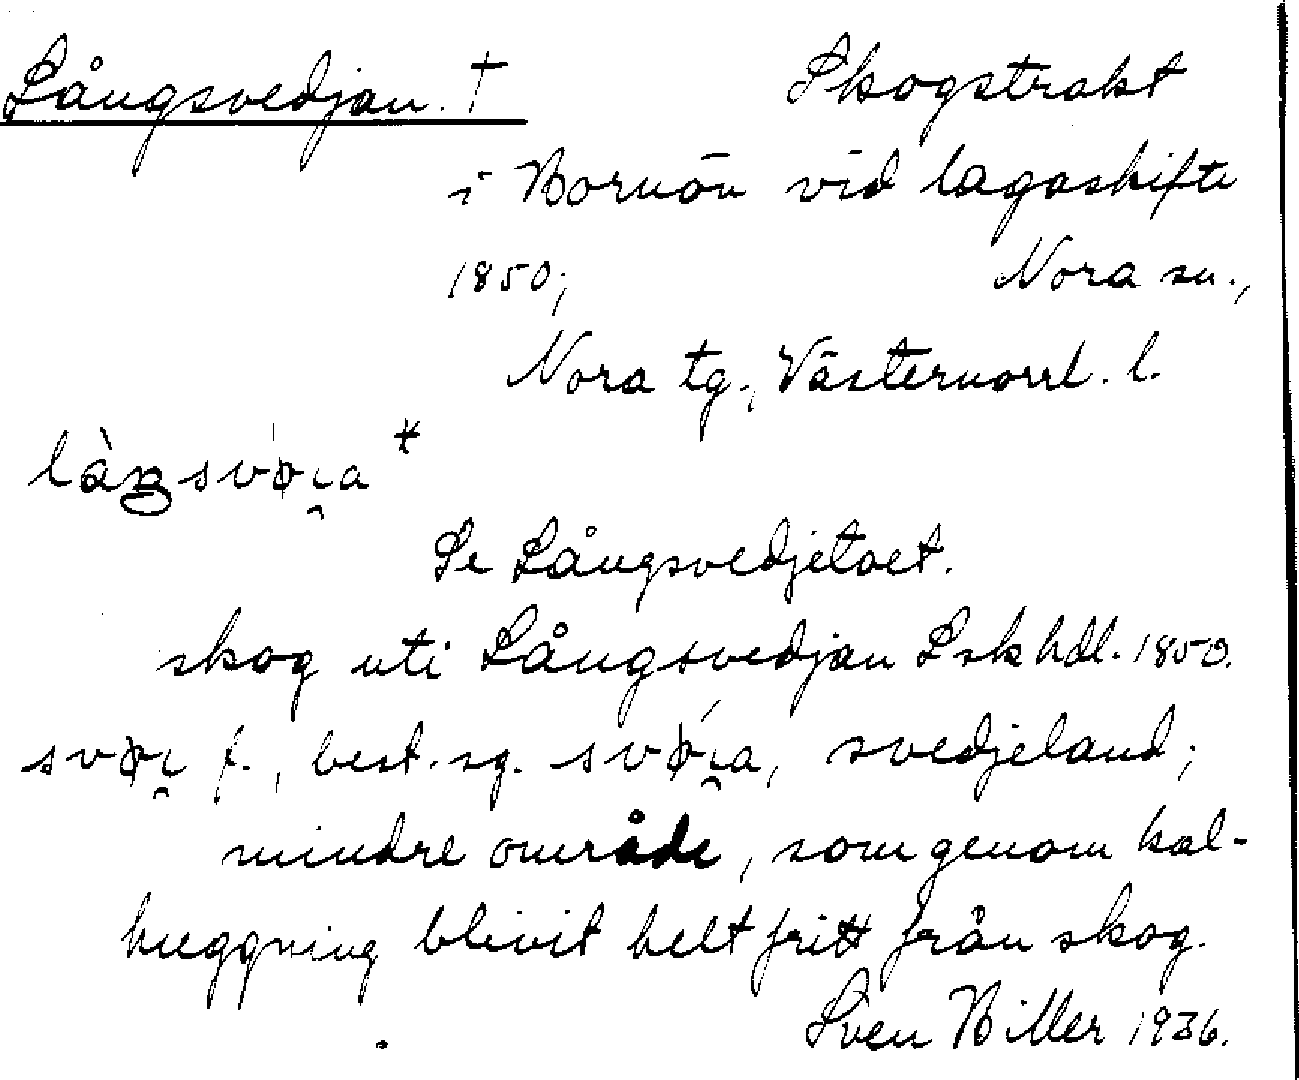 Långsvedjan. † Skogstrakt
i Bornön vid lagaskifte
1850; Nora sn.,
Nora tg., Västernorrl. l.
Se Långsvedjetoet.
skog uti Långsvedjan Lskhdl. 1850.
f., best. sg. svedjeland;
mindre område, som genom kal-
huggning blivit helt fritt från skog.
Sven Biller 1936.